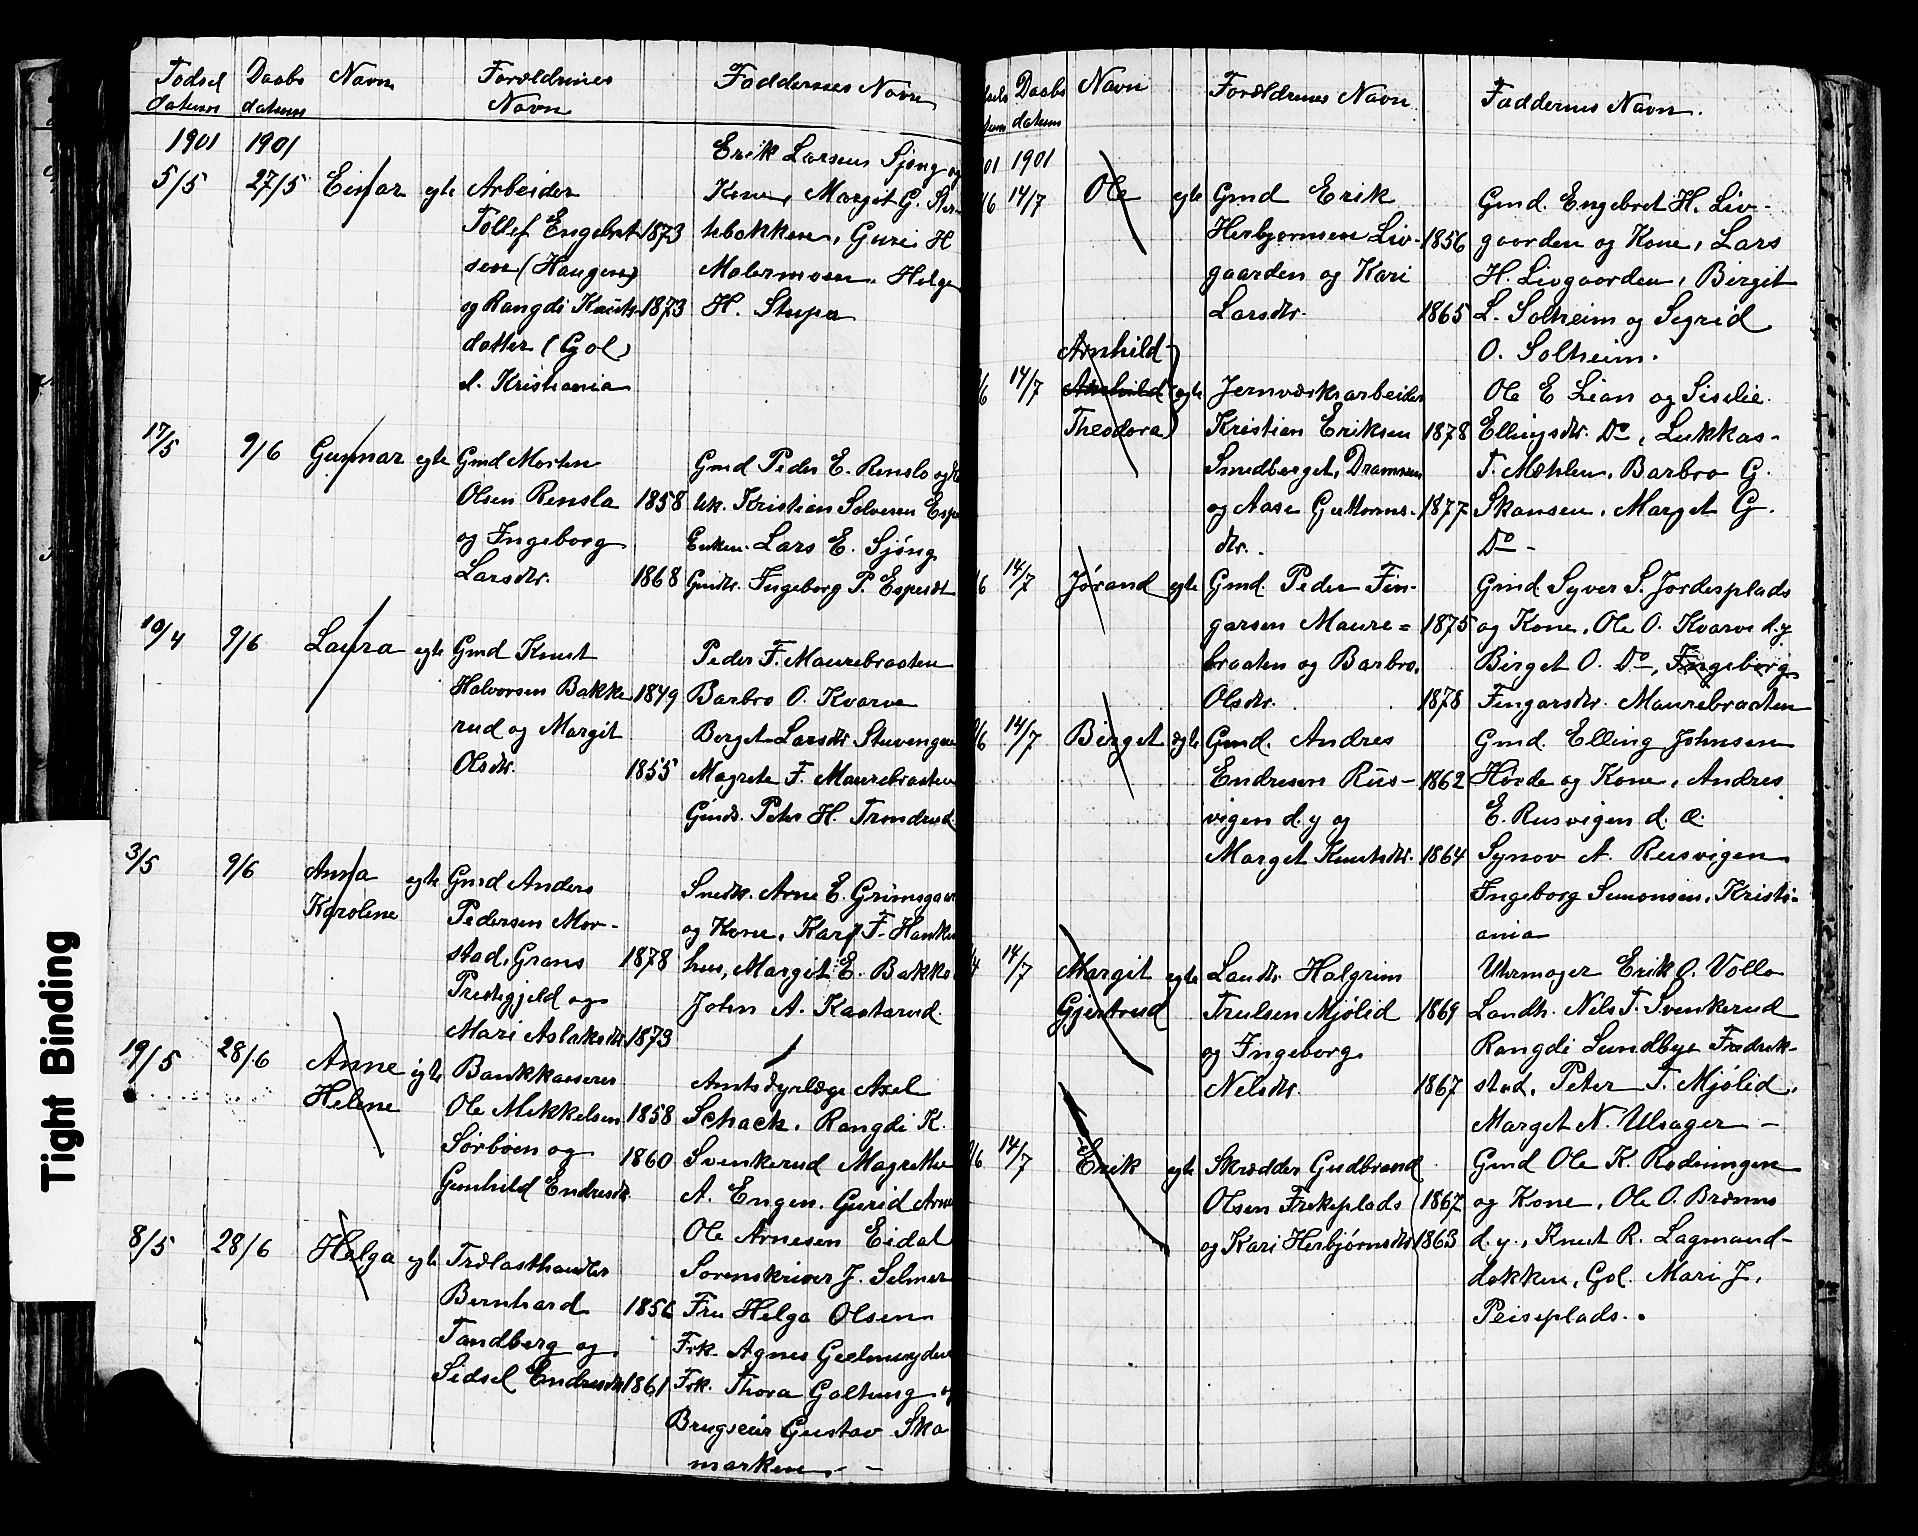 Fødsel Daabs Navn Forældrenes Faddernes Navn
datum datum Navn
1901 1901
5/5 27/5 Einar egte Arbeider Erik Larsens Sjong og
Tollef Engebret- 1873 Kone, Margit G.
sen (Haugen) tebakken, Guri H
og Rangdi Knuts- 1873 Malermoen, Helge
datter (Gol) H. Stupa
d. Kristiania
17/5 9/6 Gunnar egte Gmd Morten Gmd Peder E. Renslo og
Olsen Rensla 1858 Kristian Solvesen
og Ingeborg Enken. Lars E. Sjöng
Larsdtr. 1868 Gmdtr. Ingeborg P. Espesdt
10/4 9/6 Laura egte Gmd Knut Peder F. Maurebraaten
Halvorsen Bakke 1849 Barbro O. Kvarve
rud og Margit Berget Larsdtr Stuvengen
Olsdtr. 1855 Magrete F. Maurebraaten
Gmds. Peter H. Trondrud
3/5 9/6 Anna egte Gmd Anders Snedk. Arne E. Grimsgaar
Karolene Pedersen Mor- og Kone, Kari F. Hanke
stad, Grans 1878 hus, Margit E. Bakke
Prestegjeld og John A. Kaatarud.
Mari Aslaksdtr 1873
19/5 28/6 Anne egte Bankkasserer Amtsdyrlæge Axel
Helene Ole Mikkelsen 1858 Schack, Rangdi K.
Sørbøen og 1860 Svenkerud Magrethe
Gunhild Endresdtr. A. Engen. Gurid Arne
Ole Arnesen Eidal
8/5 28/6 Helga egte Trælasthandler Sorenskriver J. Selmer
Bernhard 1856 Fru Helga Olsen
Tandberg og Frk. Agnes Geelmuyden
Sidsel Endresdtr 1861 Frk. Thora Galtung og
Brugseier Gustav Ska
marken -
Daabs Navn Forældrenes Navn Faddernes Navn.
datum
01 1901
/6 14/7 Ole egte Gmd Erik Gmd. Engebret H. Liv-
Herbjornsen Liv- 1856 gaarden og Kone, Lars
gaarden og Kari H. Livgaarden, Birgit
Larsdtr. 1865 L. Solheim og Sigrid
O. Solheim.
Arnhild
/6 14/7 egte Jernværksarbeider Ole E Lian og Sislie
Theodora Kristian Eriksen 1878 Ellingsdtr. Do, Lukkas-
Smedberget, Drammen T. Mæhlen, Barbro G.
og Aase Guttorms- 1877 Skansen, Marget G.
dtr. Do -
/6 14/7 Jørand egte Gmd. Peder Fin- Gmd Syver S. Jordesplads
garsen Maure= 1875 og Kone, Ole O. Kvarve d.y
braaten og Barbro Birget O. Do, Ingeborg
Olsdtr. 1878 Fingarsdtr. Maurebraaten
/6 14/7 Birget egte Gmd. Andres Gmd. Elling Johnsen
Endresen Rus- 1862 Hovde og Kone, Andres
vigen d.y og E. Rusvigen d. æ.
Marget Knutsdtr. 1864 Synov A. Rusvigen
Ingeborg Simonsen, Kristi-
ania
14/7 Margit egte Landh. Halgrim Uhrmager Erik O. Vollo
Gjertrud Trulsen Mjölid 1869 Landh. Nils T. Svenkerud
og Ingeborg Rangdi Sundbye Fredrik-
Nelsdtr. 1867 stad, Peter T. Mjölid,
Marget N. Ulsager -
/6 14/7 Erik egte Skrædder Gudbrand Gmd Ole K. Rodningen
Olsen Frekeplads 1867 og Kone, Ole O. Brenno
og Kari Herbjørnsdtr 1863 d.y., Knut R. Lagmand-
dokken, Gol. Mari J.
Peiseplads.
Tight Binding